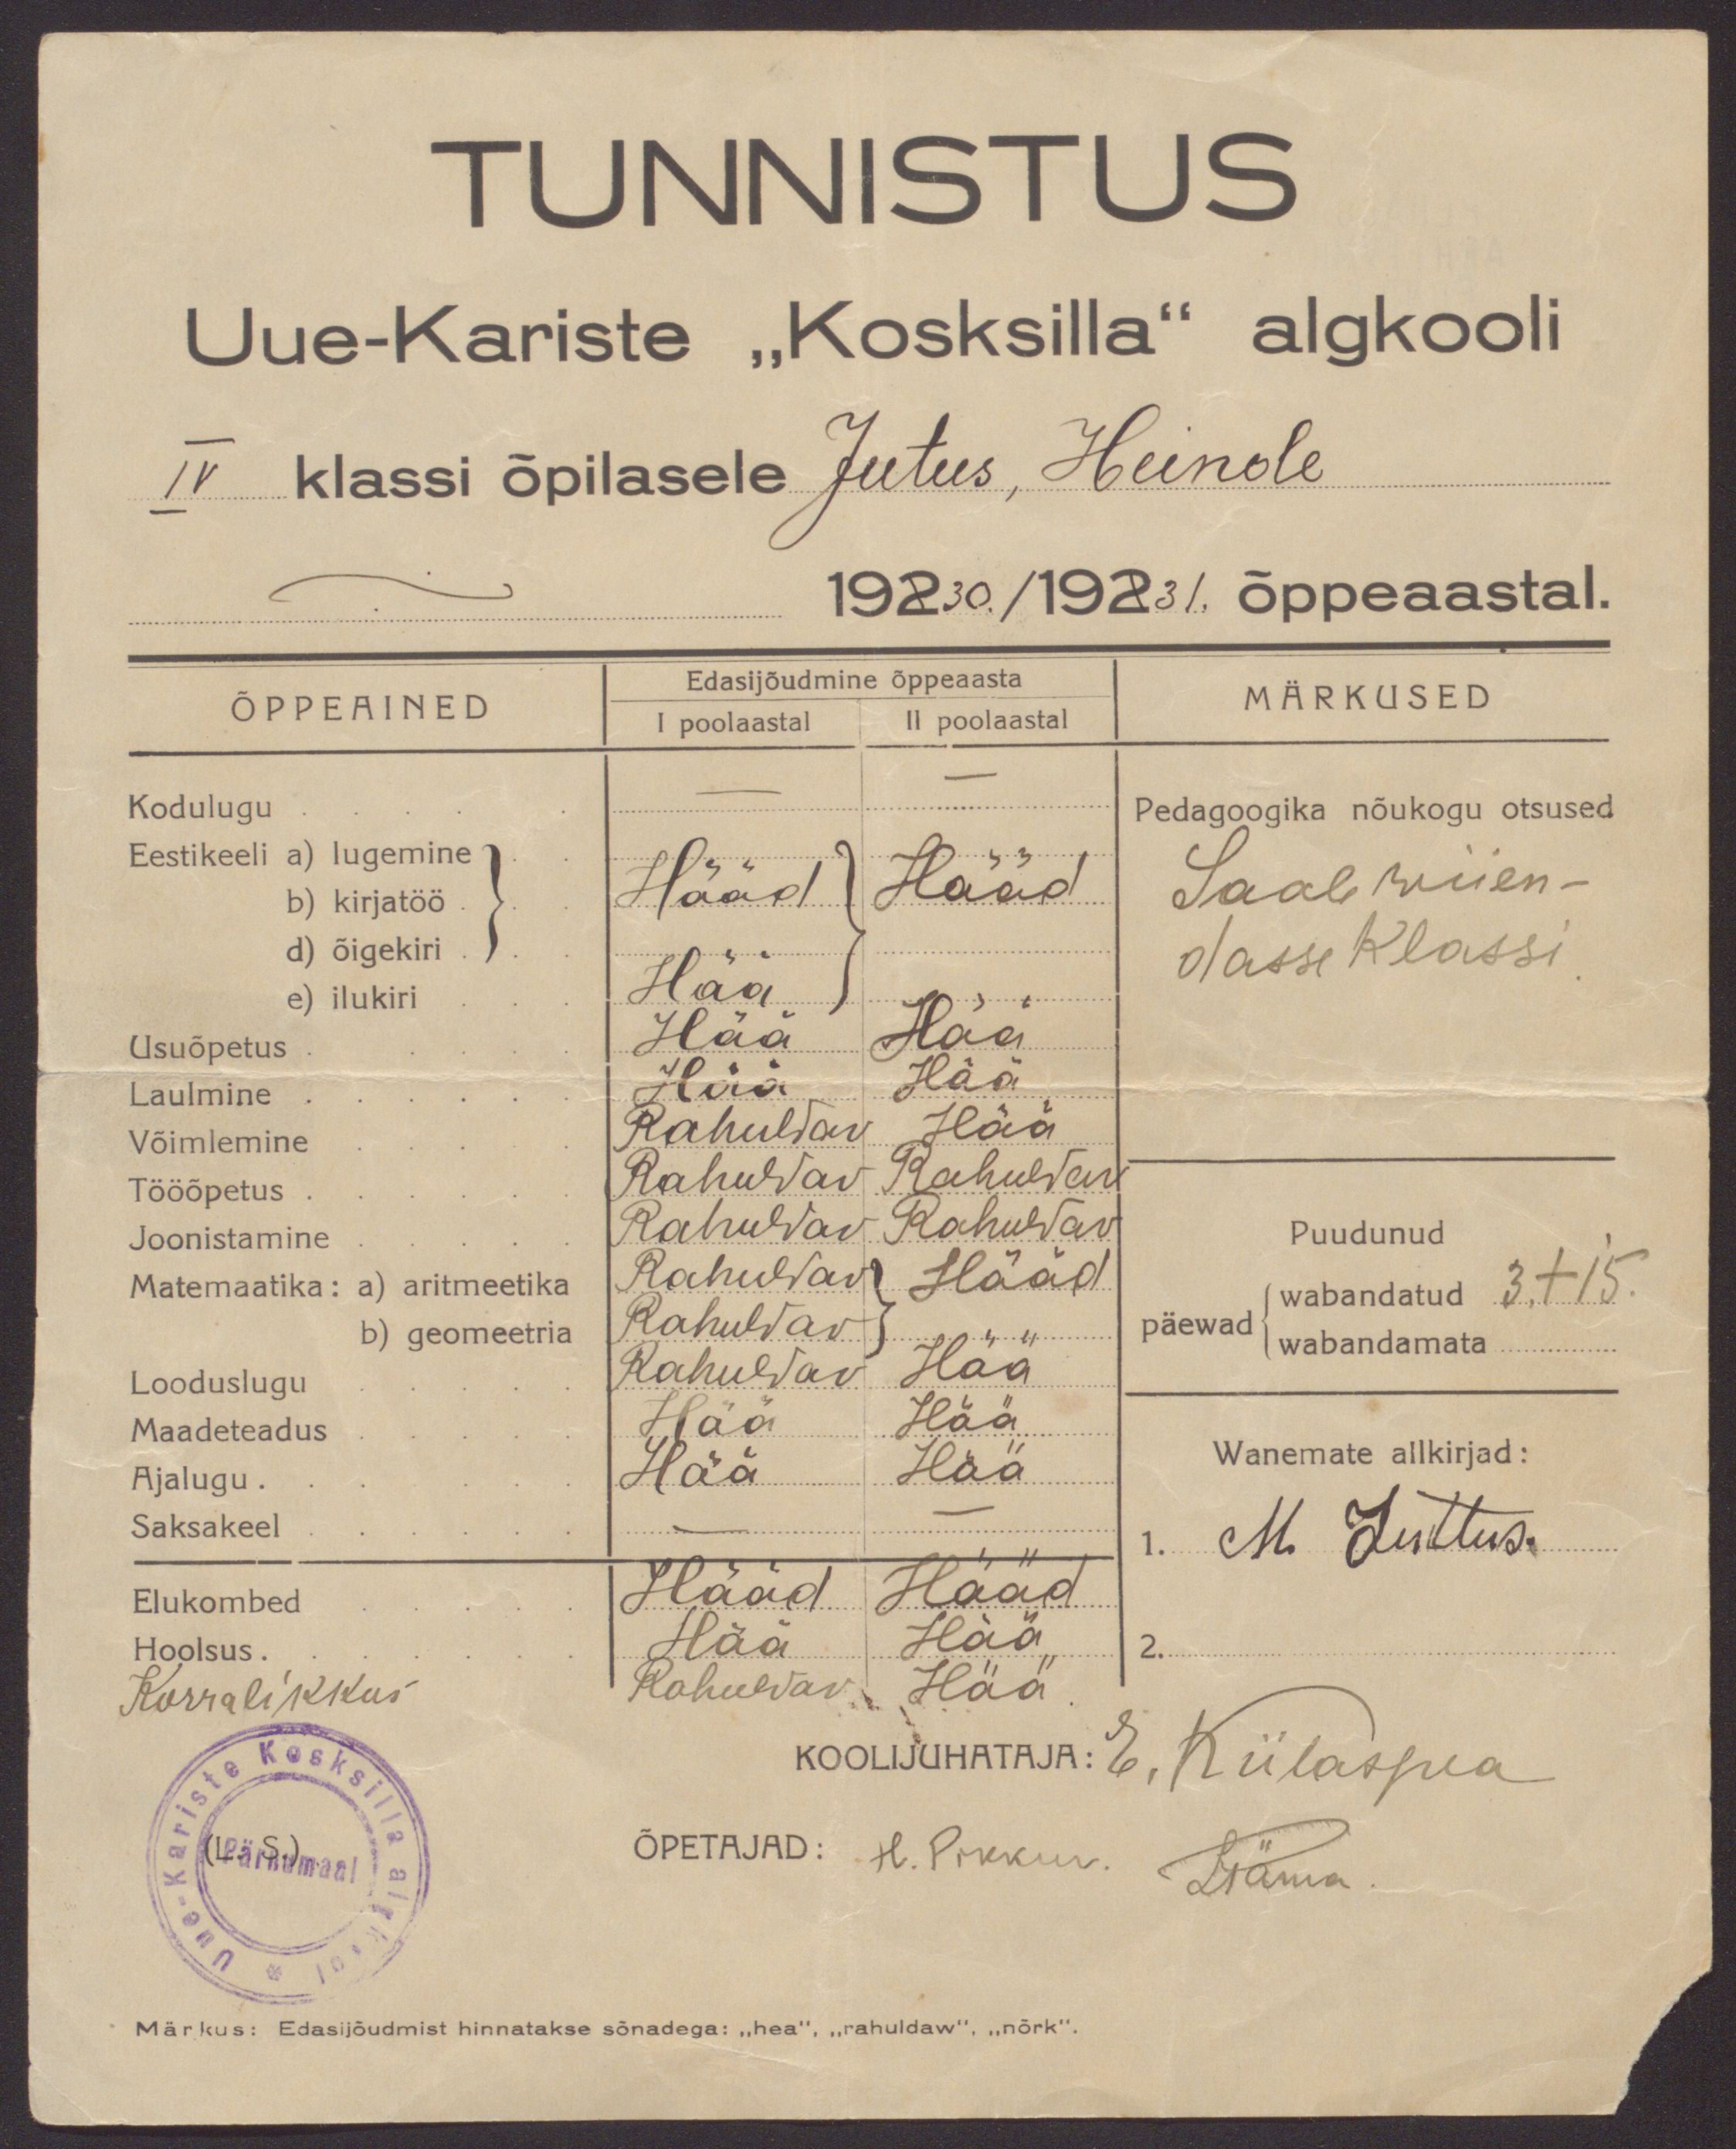 TUNNISTUS
Uue-Kariste „Kosksilla“ algkooli
IV klassi õpilasele Jutus, Heinole
19230./19231. õppeaastal.
ÕPPEAINED
Edasijõudmine õppeaasta
I poolaastal II poolaastal
MÄRKUSED
Kodulugu — —
Eestikeeli a) lugemine
b) kirjatöö Hääd Hääd
d) õigekiri
e) ilukiri Hää
Usuõpetus Hää Hää
Laulmine Hää Hää
Võimlemine Rahuldav Hää
Tööõpetus Rahuldav Rahuldav
Joonistamine Rahuldav Rahuldav
Matemaatika: a) aritmeetika Rahuldav Hääd
b) geomeetria Rahuldav
Looduslugu Rahuldav Hää
Maadeteadus Hää Hää
Ajalugu Hää Hää
Saksakeel — —
Elukombed Hääd Hääd
Hoolsus Hää Hää
Korralikkus Rahuldav Hää
Pedagoogika nõukogu otsused
Saab wiien-
dasse klassi.
Puudunud
päewad
wabandatud 3.+15.
wabandamata
Wanemate allkirjad:
1. M. Juttus.
2.
KOOLIJUHATAJA: E. Külaspea
ÕPETAJAD: H. Pikkur.
Uue-Kariste Kosksilla algkool *
Pärnumaal
(L. S.)
Märkus: Edasijõudmist hinnatakse sõnadega: „hea“, „rahuldaw“, „nõrk“.